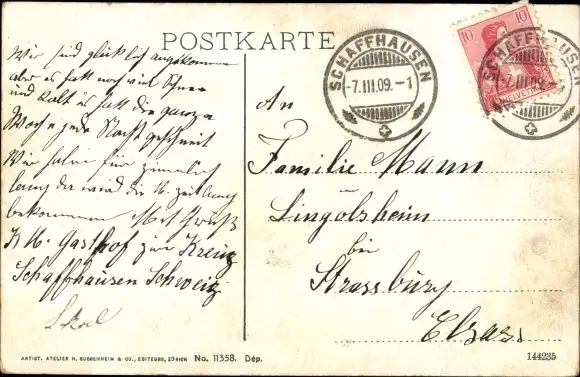 POSTKARTE
Wir sind glücklich angekommen
aber es hat noch viel Schnee
und kalt es hat die ganze
Woche jede Nacht geschneit
Wir haben für
lang die wird die
bekommen Mit Gruß
Gasthof zum Kreuz
Schaffhausen Schweiz
SCHAFFHAUSEN
-7.III.09.-1
10 10
HELVETIA
SCHAFFHAUSEN
-7.III.09.
An
Familie Mann
in
Lingolsheim
bei
Strassburg
Elsass
ARTIST. ATELIER H. GUGGENHEIM & CO., EDITEURS, ZÜRICH No. 11358. Dép.
144235